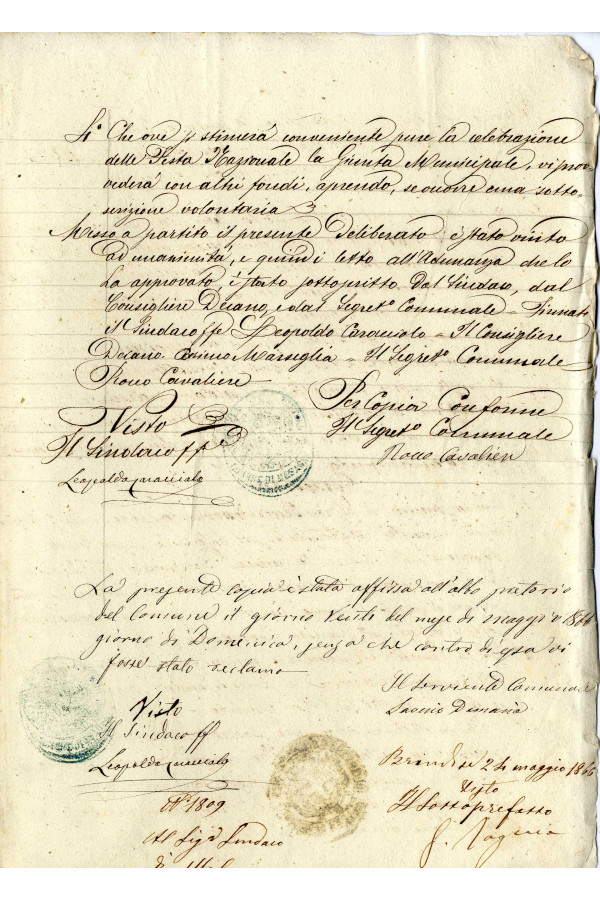 4° Che ove si stimerà conveniente pure la celebrazione
delle Festa Nazionale la Giunta Municipale, vi prov-
vederà con altri fondi, aprendo, se occorre una sotto-
scrizione volontaria
Messo a partito il presente deliberato è stato vinto
ad unanimità, e quindi letto all'Adunanza che lo
ha approvato, è stato sottoscritto dal Sindaco, dal
Consigliere Decano, e dal Segret° Comunale - Firmato
il Sindaco ff Leopoldo Caracciolo - Il Consigliere
Decano Cosimo Marseglia - Il Segret° Comunale
Rocco Cavaliere
Per Copia Conforme
Il Segret° Comunale
Rocco Cavaliere
Visto
Il Sindaco ff
Leopoldo Caracciolo
La presente copia è stata affissa all'albo pretorio
del Comune il giorno Venti del mese di maggio 1866
giorno di Domenica, senza che contro di essa vi
fosse stato reclamo
Il Serviente Comunale
Visto
Il Sindaco ff
Leopoldo Caracciolo
Brindisi 24 maggio 1866
Visto
Il Sottoprefetto
N° 1809
Al Sigr Sindaco
di